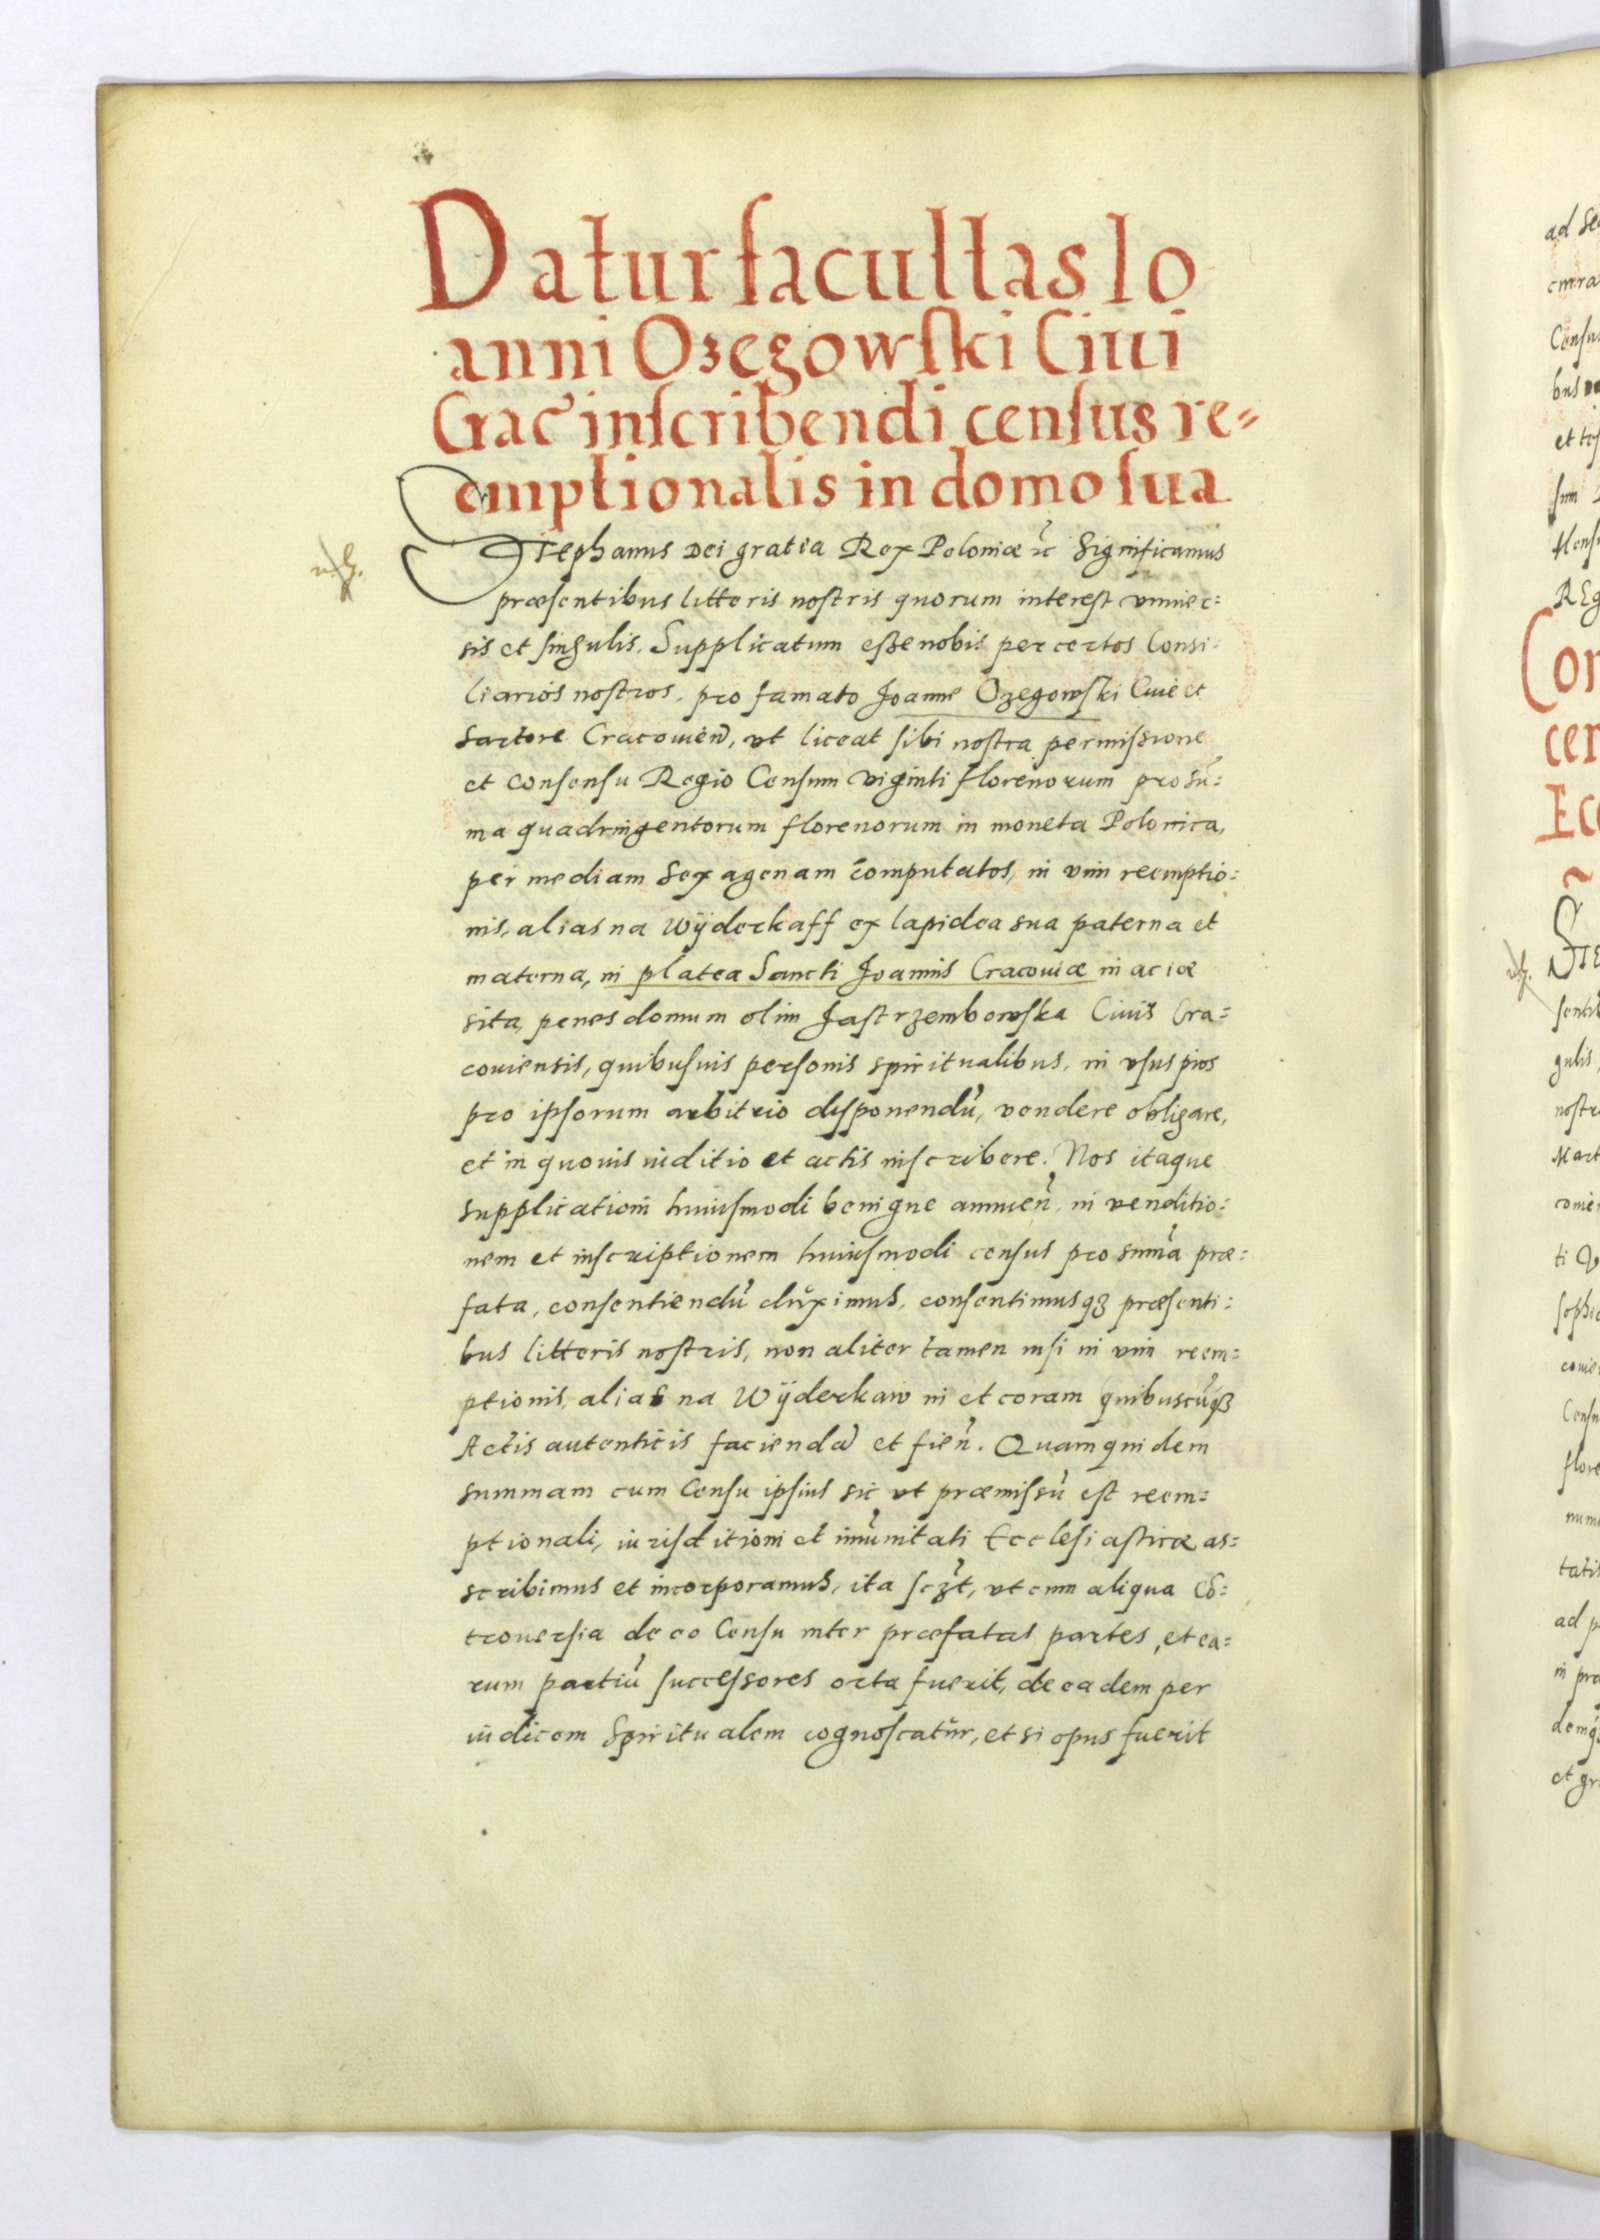 Datur facultas Io
anni Ozegowski Ciui
Crac̃ inscribendi census re=
emptionalis in domo sua
Stephanus Dei gratia Rex Poloniæ ꝛc̃ Significamus
præsentibus litteris nostris quorum interest vniuer=
sis et singulis. Supplicatum eße nobis per certos Consi:
liarios nostros, pro famato Joanne Ozegowski Ciue et
Sartore Cracouieñ, vt liceat sibi nostra permissione
et consensu Regio Censum viginti florenorum pro sũ:
ma quadringentorum florenorum in moneta Polonica,
per mediam Sexagenam computatos, in vim reemptio:
nis, alias na Wÿderkaff ex lapidea sua paterna et
materna, in platea Sancti Joannis Cracouiæ in acie
sita, penes domum olim Jastrzembowska Ciuis Cra=
couiensis, quibusuis personis spiritualibus, in vsus pios
pro ipsorum arbitrio disponendũ, vendere obligare,
et in quouis iuditio et actis inscribere. Nos itaque
supplicationi huiusmodi benigne annueñ, in venditio:
nem et inscriptionem huiusmodi census pro sum̃a præ=
fata, consentiendũ duximus, consentimusqʒ præsenti:
bus litteris nostris, non aliter tamen nisi in vim reem=
ptionis, alias na Wÿderkaw in et coram quibuscũqʒ
Actis autenticis faciendã et fieñ. Quam quidem
summam cum Censu ipsius sic vt præmissũ est reem=
ptionali, iurisditioni et im̃unitati Ecclesiasticæ as=
scribimus et incorporamus, ita sczt̃, vt cum aliqua cõ=
trouersia de eo Censu inter præfatas partes, et ea=
rum partiũ successores orta fuerit, de eadem per
iudicem Spiritualem cognoscatur, et si opus fuerit